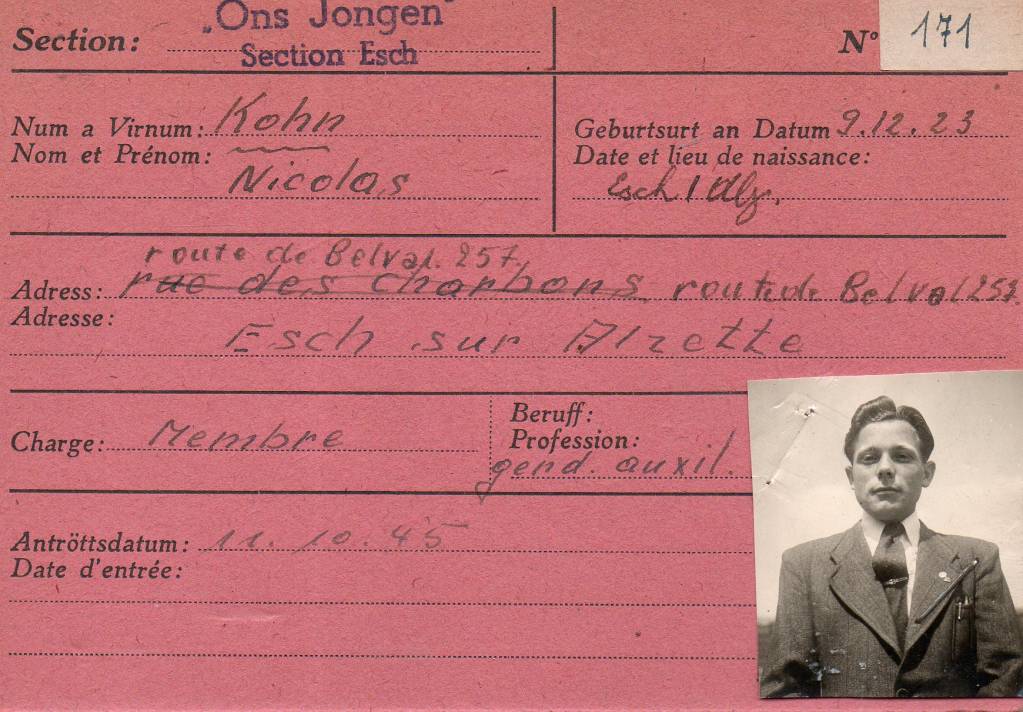 „Ons Jongen"
Section: Section Esch
N° 171
Num a Virnum: Kohn
Nom et Prénom:
Nicolas
Geburtsurt an Datum 9.12.23
Date et lieu de naissance:
Esch / Alz.
route de Belval. 257.
Adress: rue des Charbons route de Belval 257.
Adresse:
Esch sur Alzette
Charge: Membre
Beruff:
Profession:
gend. auxil.
Antröttsdatum: 11. 10. 45
Date d'entrée: